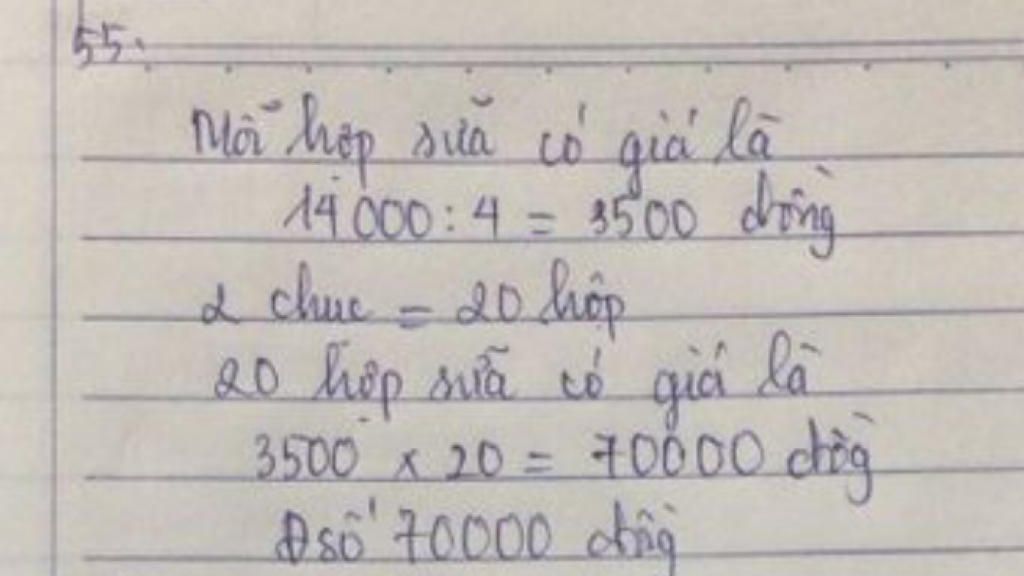 55.
Mỗi hộp sữa có giá là
14000 : 4 = 3500 đồng
2 chuc = 20 hộp
20 hộp sữa có giá là
3500 x 20 = 70000 đồg
Đsố 70000 đồng